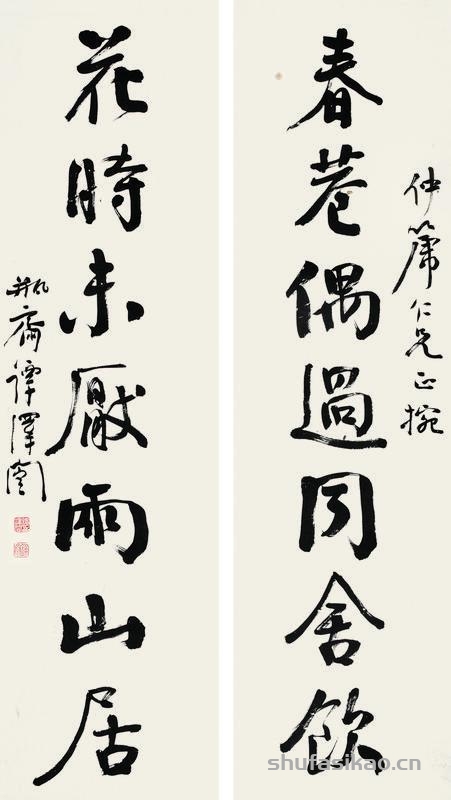 仲箎仁兄正捥
春巷偶過同舍飲
花時未厭雨山居
瓶齋譚澤闓
shufasikao.cn